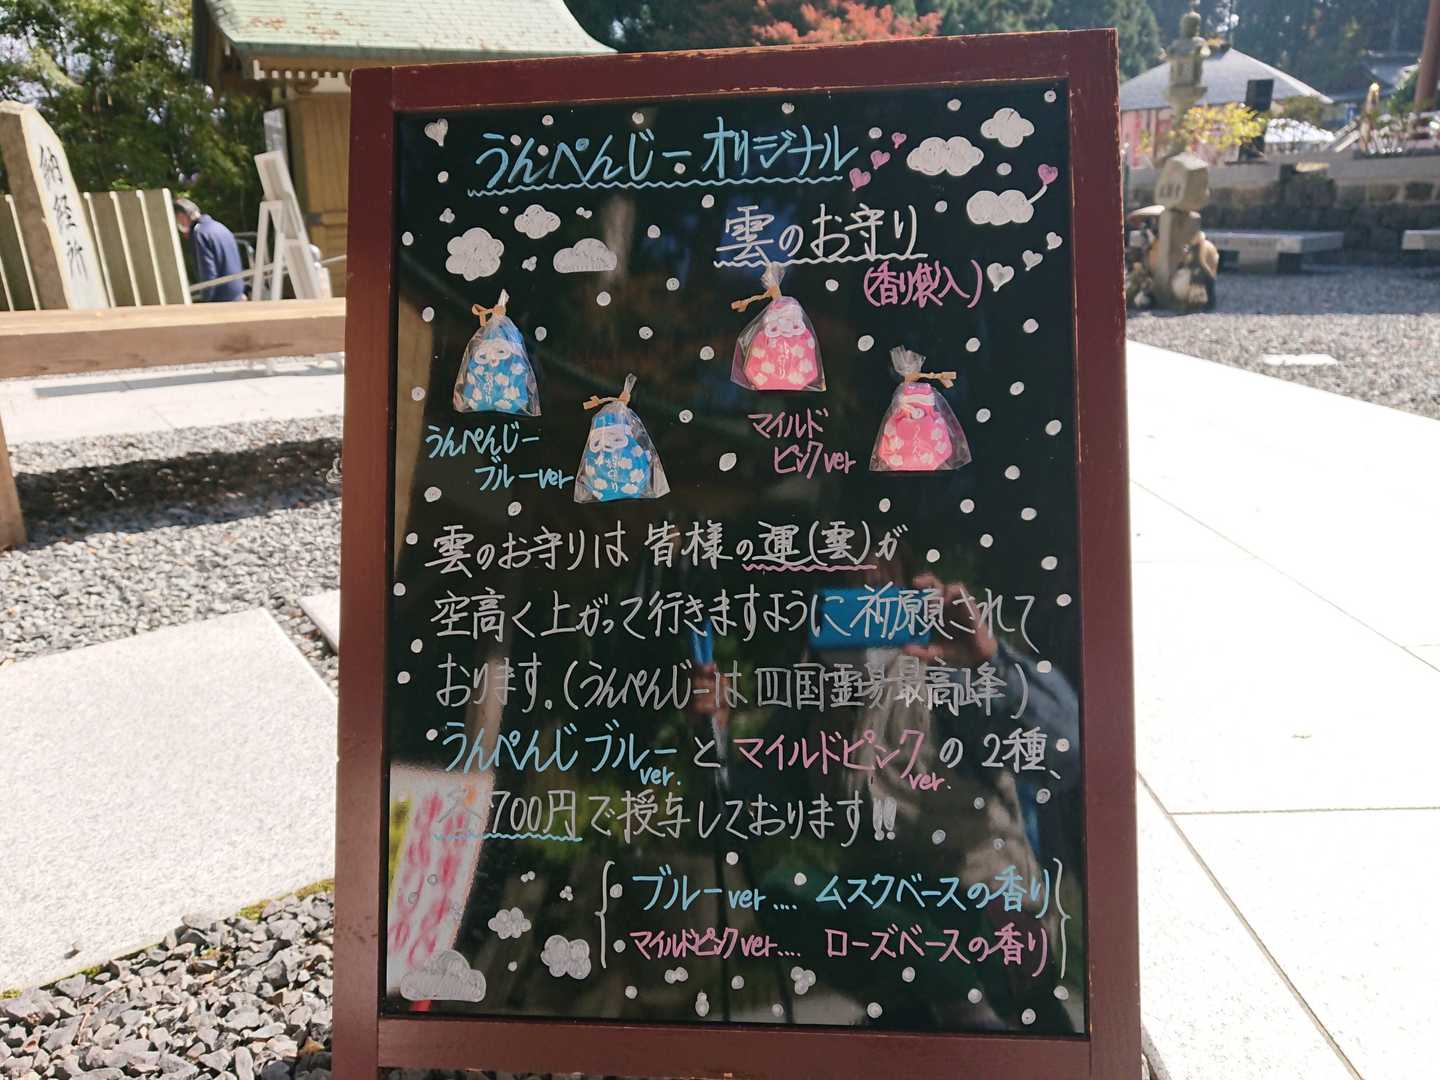 納経所
うんぺんじーオリジナル
雲のお守り
(香り袋入)
うんぺんじー
ブルーver
マイルド
ピンクver
雲のお守りは皆様の運(雲)が
空高く上がって行きますように祈願されて
おります。(うんぺんじーは四国霊場最高峰)
うんぺんじブルーver.とマイルドピンクver.の2種、
700円で授与しております!!
ブルーver.... ムスクベースの香り
マイルドピンクver.... ローズベースの香り